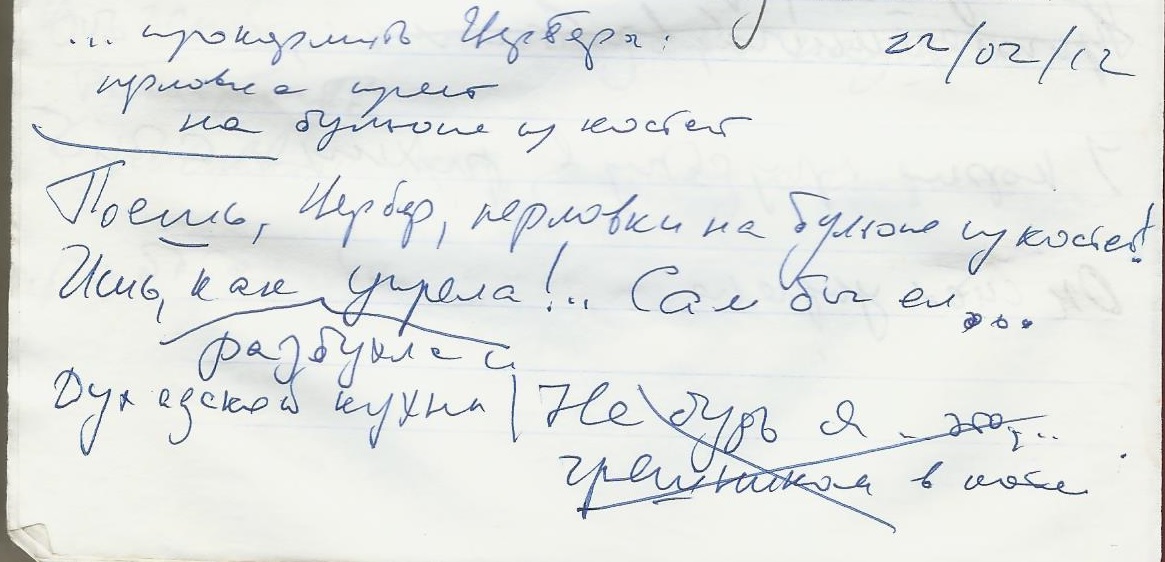 ... прокормить Цербера: 22/02/12
перловка преет
на бульоне из костей
Поешь, Цербер, перловки на бульоне из костей!
Ишь, как упрела!.. Сам бы ел,...
разбухла
Дух адской кухни | Не будь я
грешником в